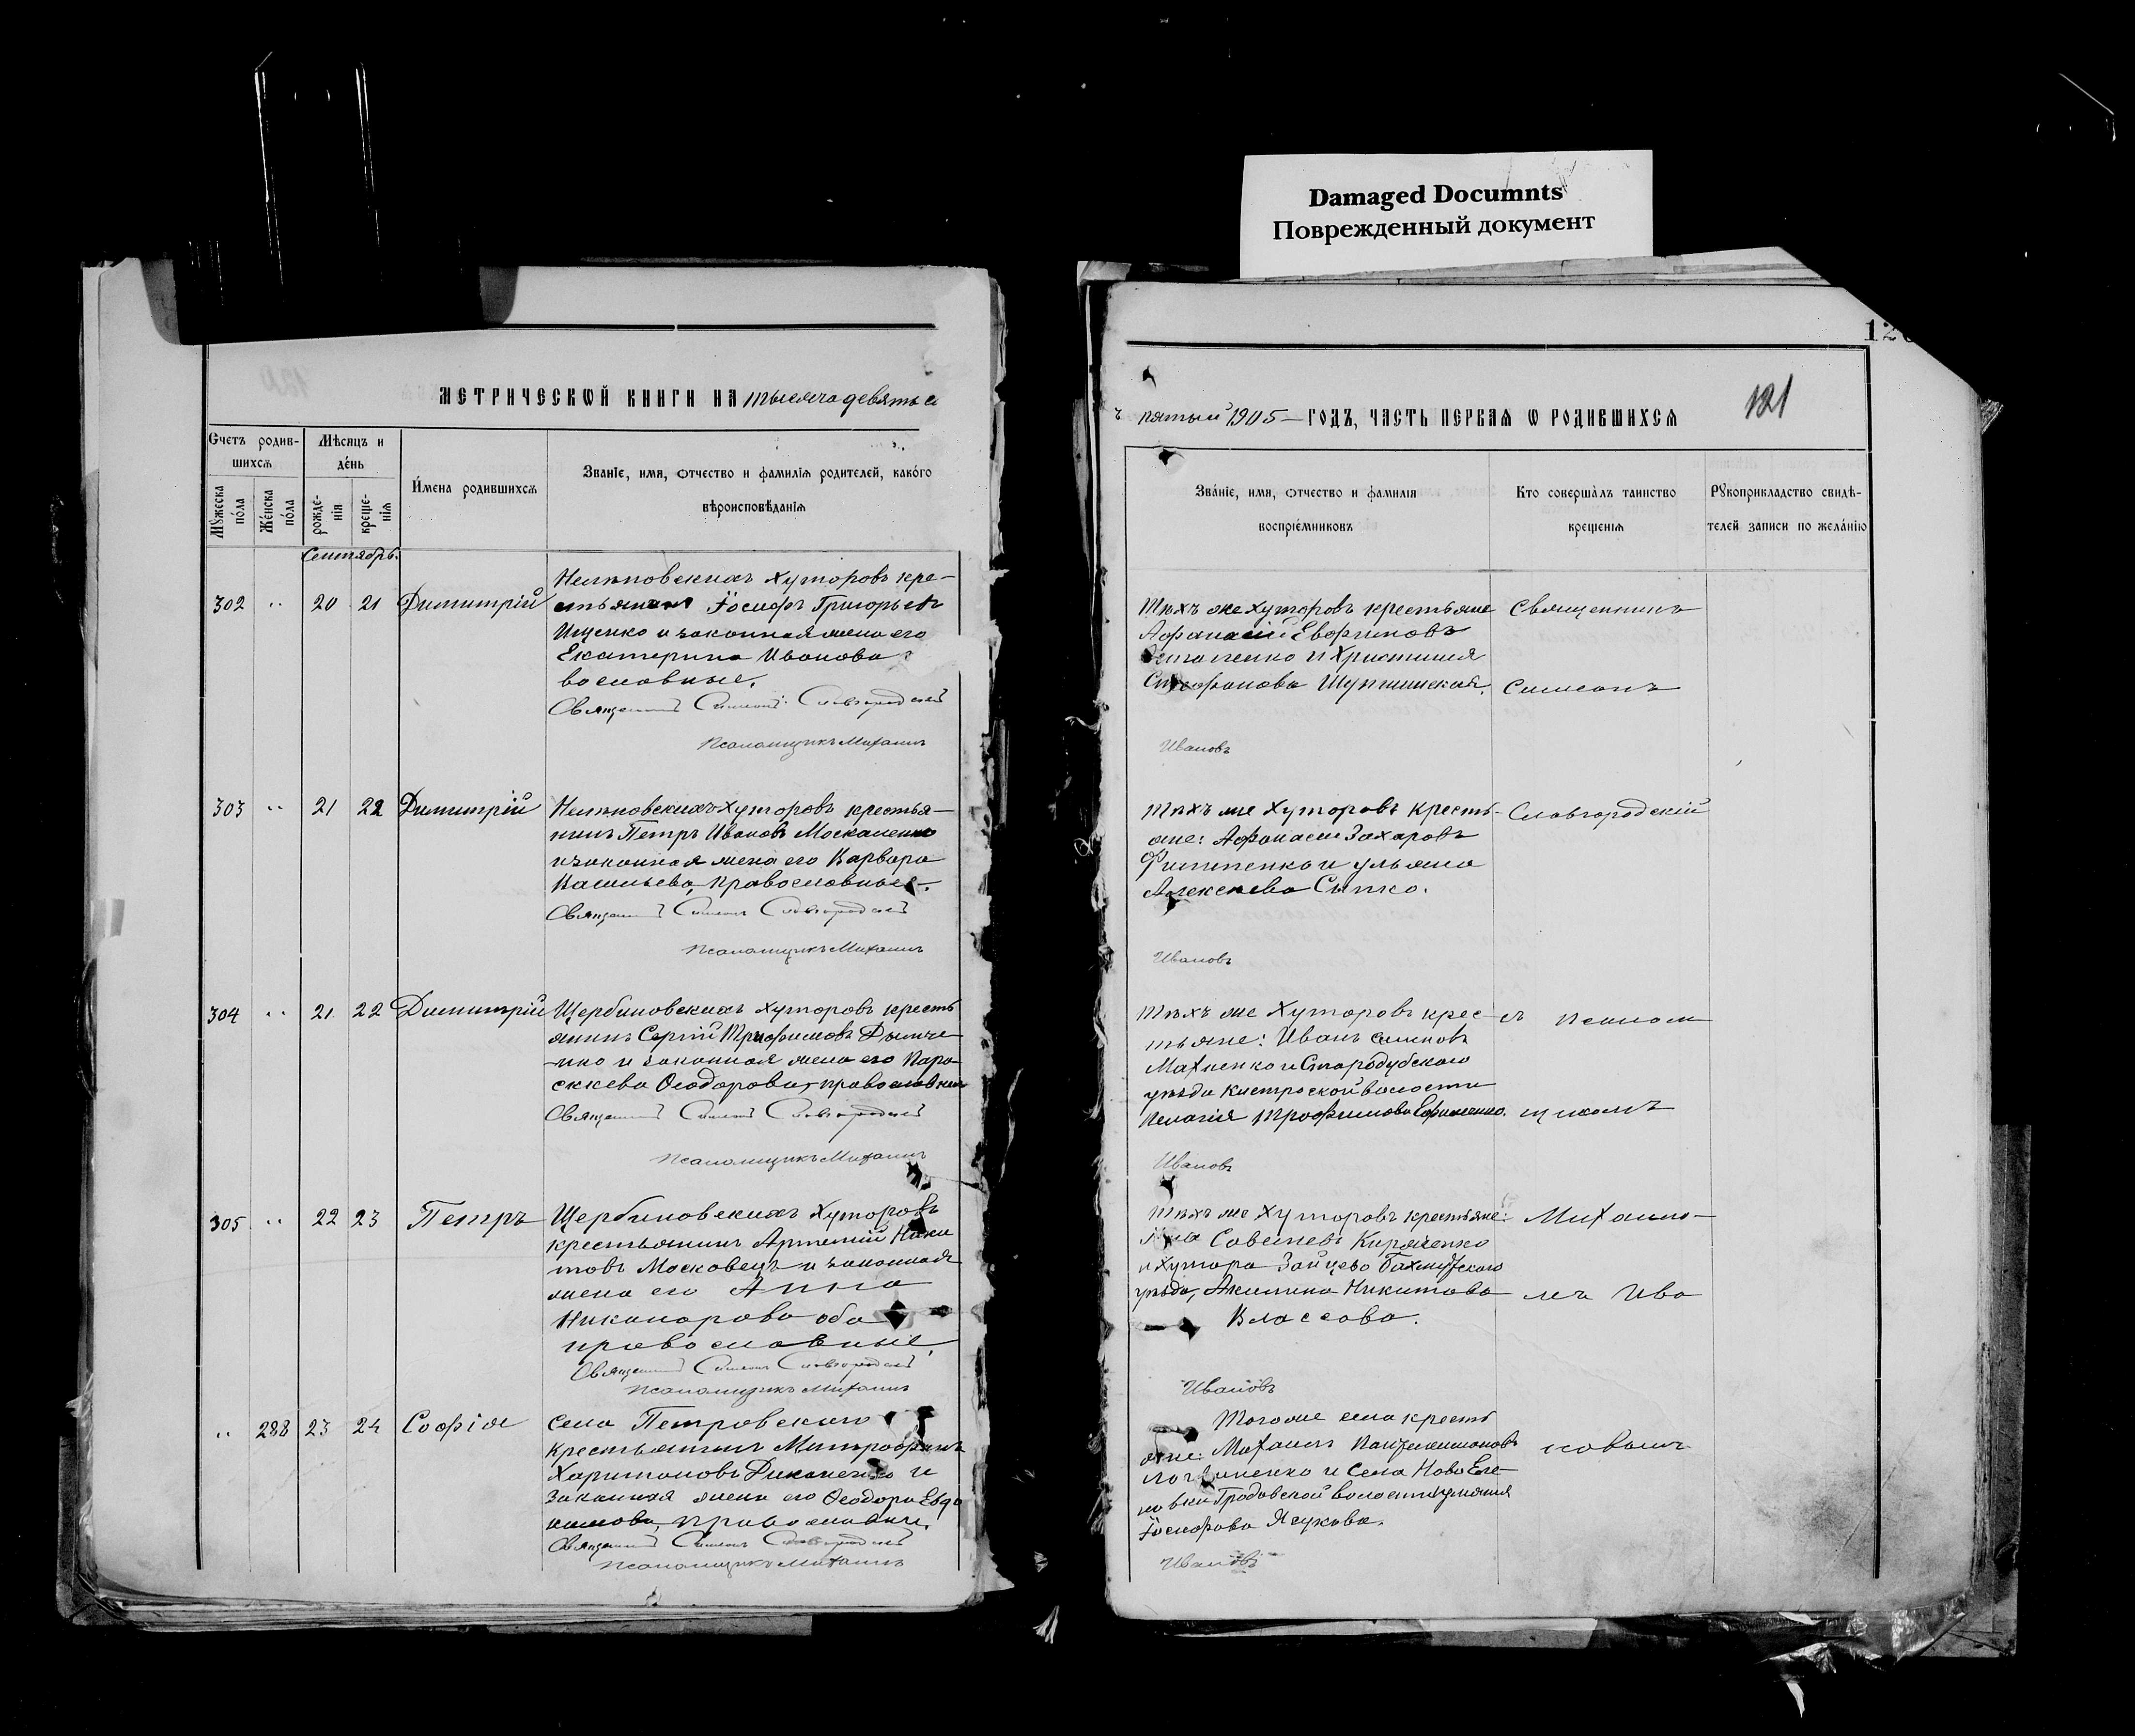 Damaged Documnts
Поврежденный документ
МЕТРИЧЕСКОЙ КНИГИ НА тысяча девять с
Счетъ родив-
шихся
Мѣсяцъ и
день
Имена родившихся
Званіе, имя, отчество и фамилія родителей, какого
вѣроисповѣданія
Мужеска пола
Женска пола
рожде-
нія
креще-
нія
Сентябрь.
Нелѣповскихъ хуторовъ кре-
302 " 20 21 Димитрій стьянинъ Іосифъ Григорьевъ
Ищенко и законная жена его
Екатерина Иванова
вославные.
Священникъ Симеонъ Словгородскій
Псаломщикъ Михаилъ
303 " 21 22 Димитрій Нелѣповскихъ хуторовъ крестья-
нинъ Петръ Ивановъ Москаленко
и законная жена его Варвара
Васильева, православные.
Священникъ Симеонъ Словгородскій
Псаломщикъ Михаилъ
304 " 21 22 Димитрій Щербиновскихъ хуторовъ кресть
янинъ Сергій Трофимовъ
и законная жена его Пара-
скева Ѳеодорова, православные
Священникъ Симеонъ Словгородскій
Псаломщикъ Михаилъ
305 " 22 23 Петръ Щербиновскихъ хуторовъ
крестьянинъ Артемій Ники
товъ Московецъ и законная
жена его Анна
Никанорова оба
православные.
Священникъ Симеонъ Словгородскій
Псаломщикъ Михаилъ
" 288 23 24 Софія Села Петровскаго
крестьянинъ Митрофанъ
Харитоновъ и
законная жена его Ѳеодора Евдо
кимова, православные.
Священникъ Симеонъ Словгородскій
Псаломщикъ Михаилъ
120
121
ъ пятый 1905 – ГОДЪ, ЧАСТЬ ПЕРВАЯ Ѡ РОДИВШИХСЯ
Званіе, имя, отчество и фамилія
воспріемниковъ
Кто совершалъ таинство
крещенія
Рукоприкладство свидѣ-
телей записи по желанію
Тѣхъ же хуторовъ крестьяне Священникъ
Афанасій Евфимовъ
и Христина
Стефанова Симеонъ
Ивановъ
Тѣхъ же хуторовъ кресть- Словгородскій
яне: Афанасій Захаровъ
Филипенко и Ульяна
Алексѣева Сытко.
Ивановъ
Тѣхъ же хуторовъ крес- съ псалом
тьяне: Иванъ
Махненко и Стародубскаго
уѣзда волости
Пелагія Трофимова Ефименко. щикомъ
Ивановъ
Тѣхъ же хуторовъ крестьяне: Михаило-
Савельевъ Кириченко
и хутора Зайцево Бахмутскаго
уѣзда, Акилина Никитова мъ Ива
Власова.
Ивановъ
Того же села кресть
яне: Михаилъ Пантелеимоновъ новымъ
и села Ново Еле-
новки Гродовской волости
Іосифова
Ивановъ